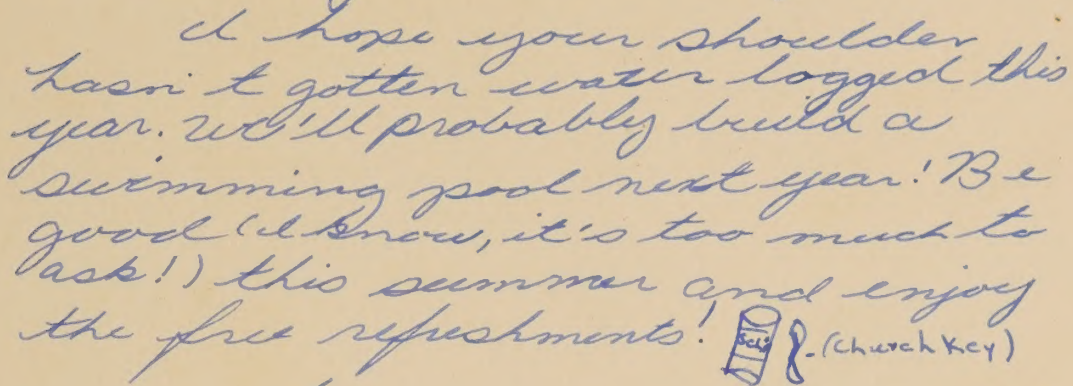 I hope your shoulder
hasn't gotten water logged this
year. We'll probably build a
swimming pool next year! Be
good (I know, it's too much to
ask!) this summer and enjoy
the free refreshments! (Church Key)